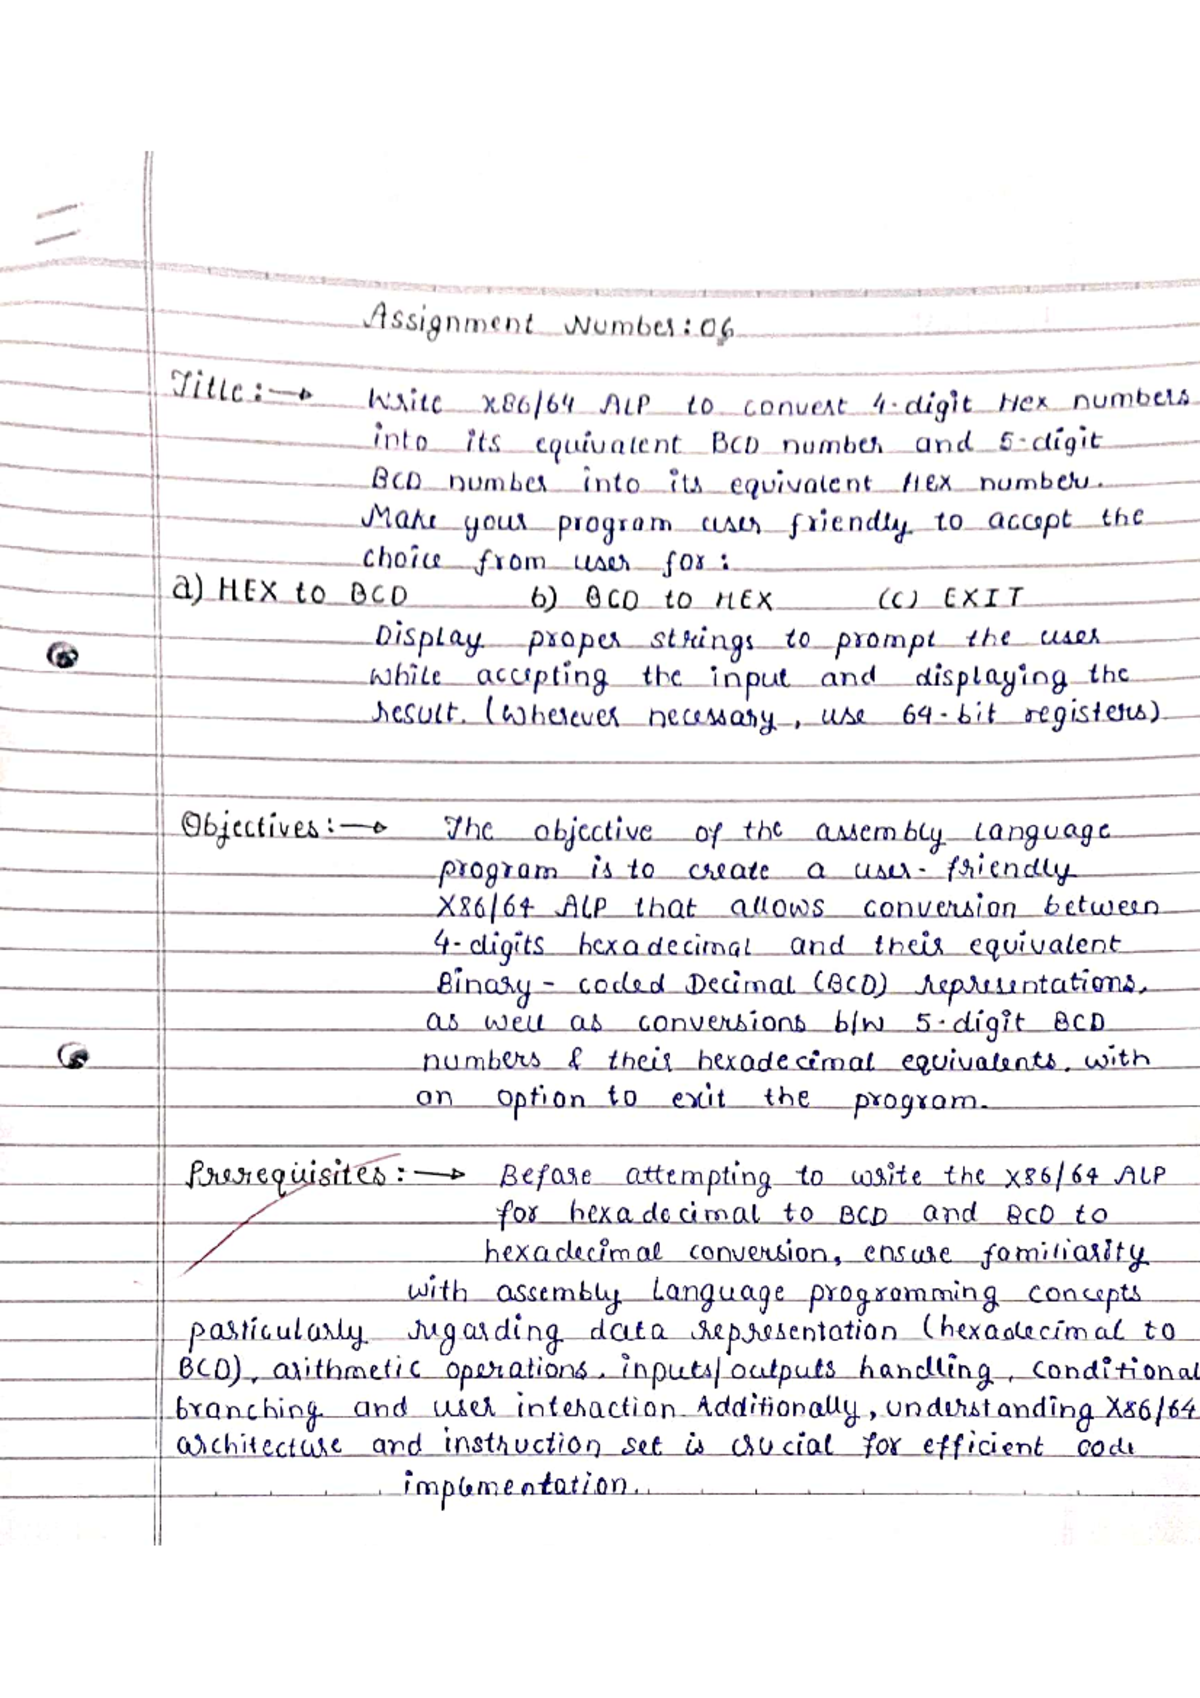 Assignment Number: 06
Title :→ Write X86/64 ALP to convert 4-digit Hex numbers
into its equivalent BCD number and 5-digit
BCD number into its equivalent HEX number.
Make your program user friendly to accept the
choice from user for :
a) HEX to BCD b) BCD to HEX (C) EXIT
Display proper strings to prompt the user
while accepting the input and displaying the
result. (Wherever necessary, use 64-bit registers)
Objectives :→ The objective of the assembly language
program is to create a user-friendly
X86/64 ALP that allows conversion between
4-digits hexadecimal and their equivalent
Binary-coded Decimal (BCD) representations,
as well as conversions b/w 5-digit BCD
numbers & their hexadecimal equivalents, with
an option to exit the program.
Prerequisites :→ Before attempting to write the X86/64 ALP
for hexadecimal to BCD and BCD to
hexadecimal conversion, ensure familiarity
with assembly language programming concepts
particularly regarding data representation (hexadecimal to
BCD), arithmetic operations, inputs/outputs handling, conditional
branching and user interaction Additionally, understanding X86/64
architecture and instruction set is crucial for efficient code
implementation.